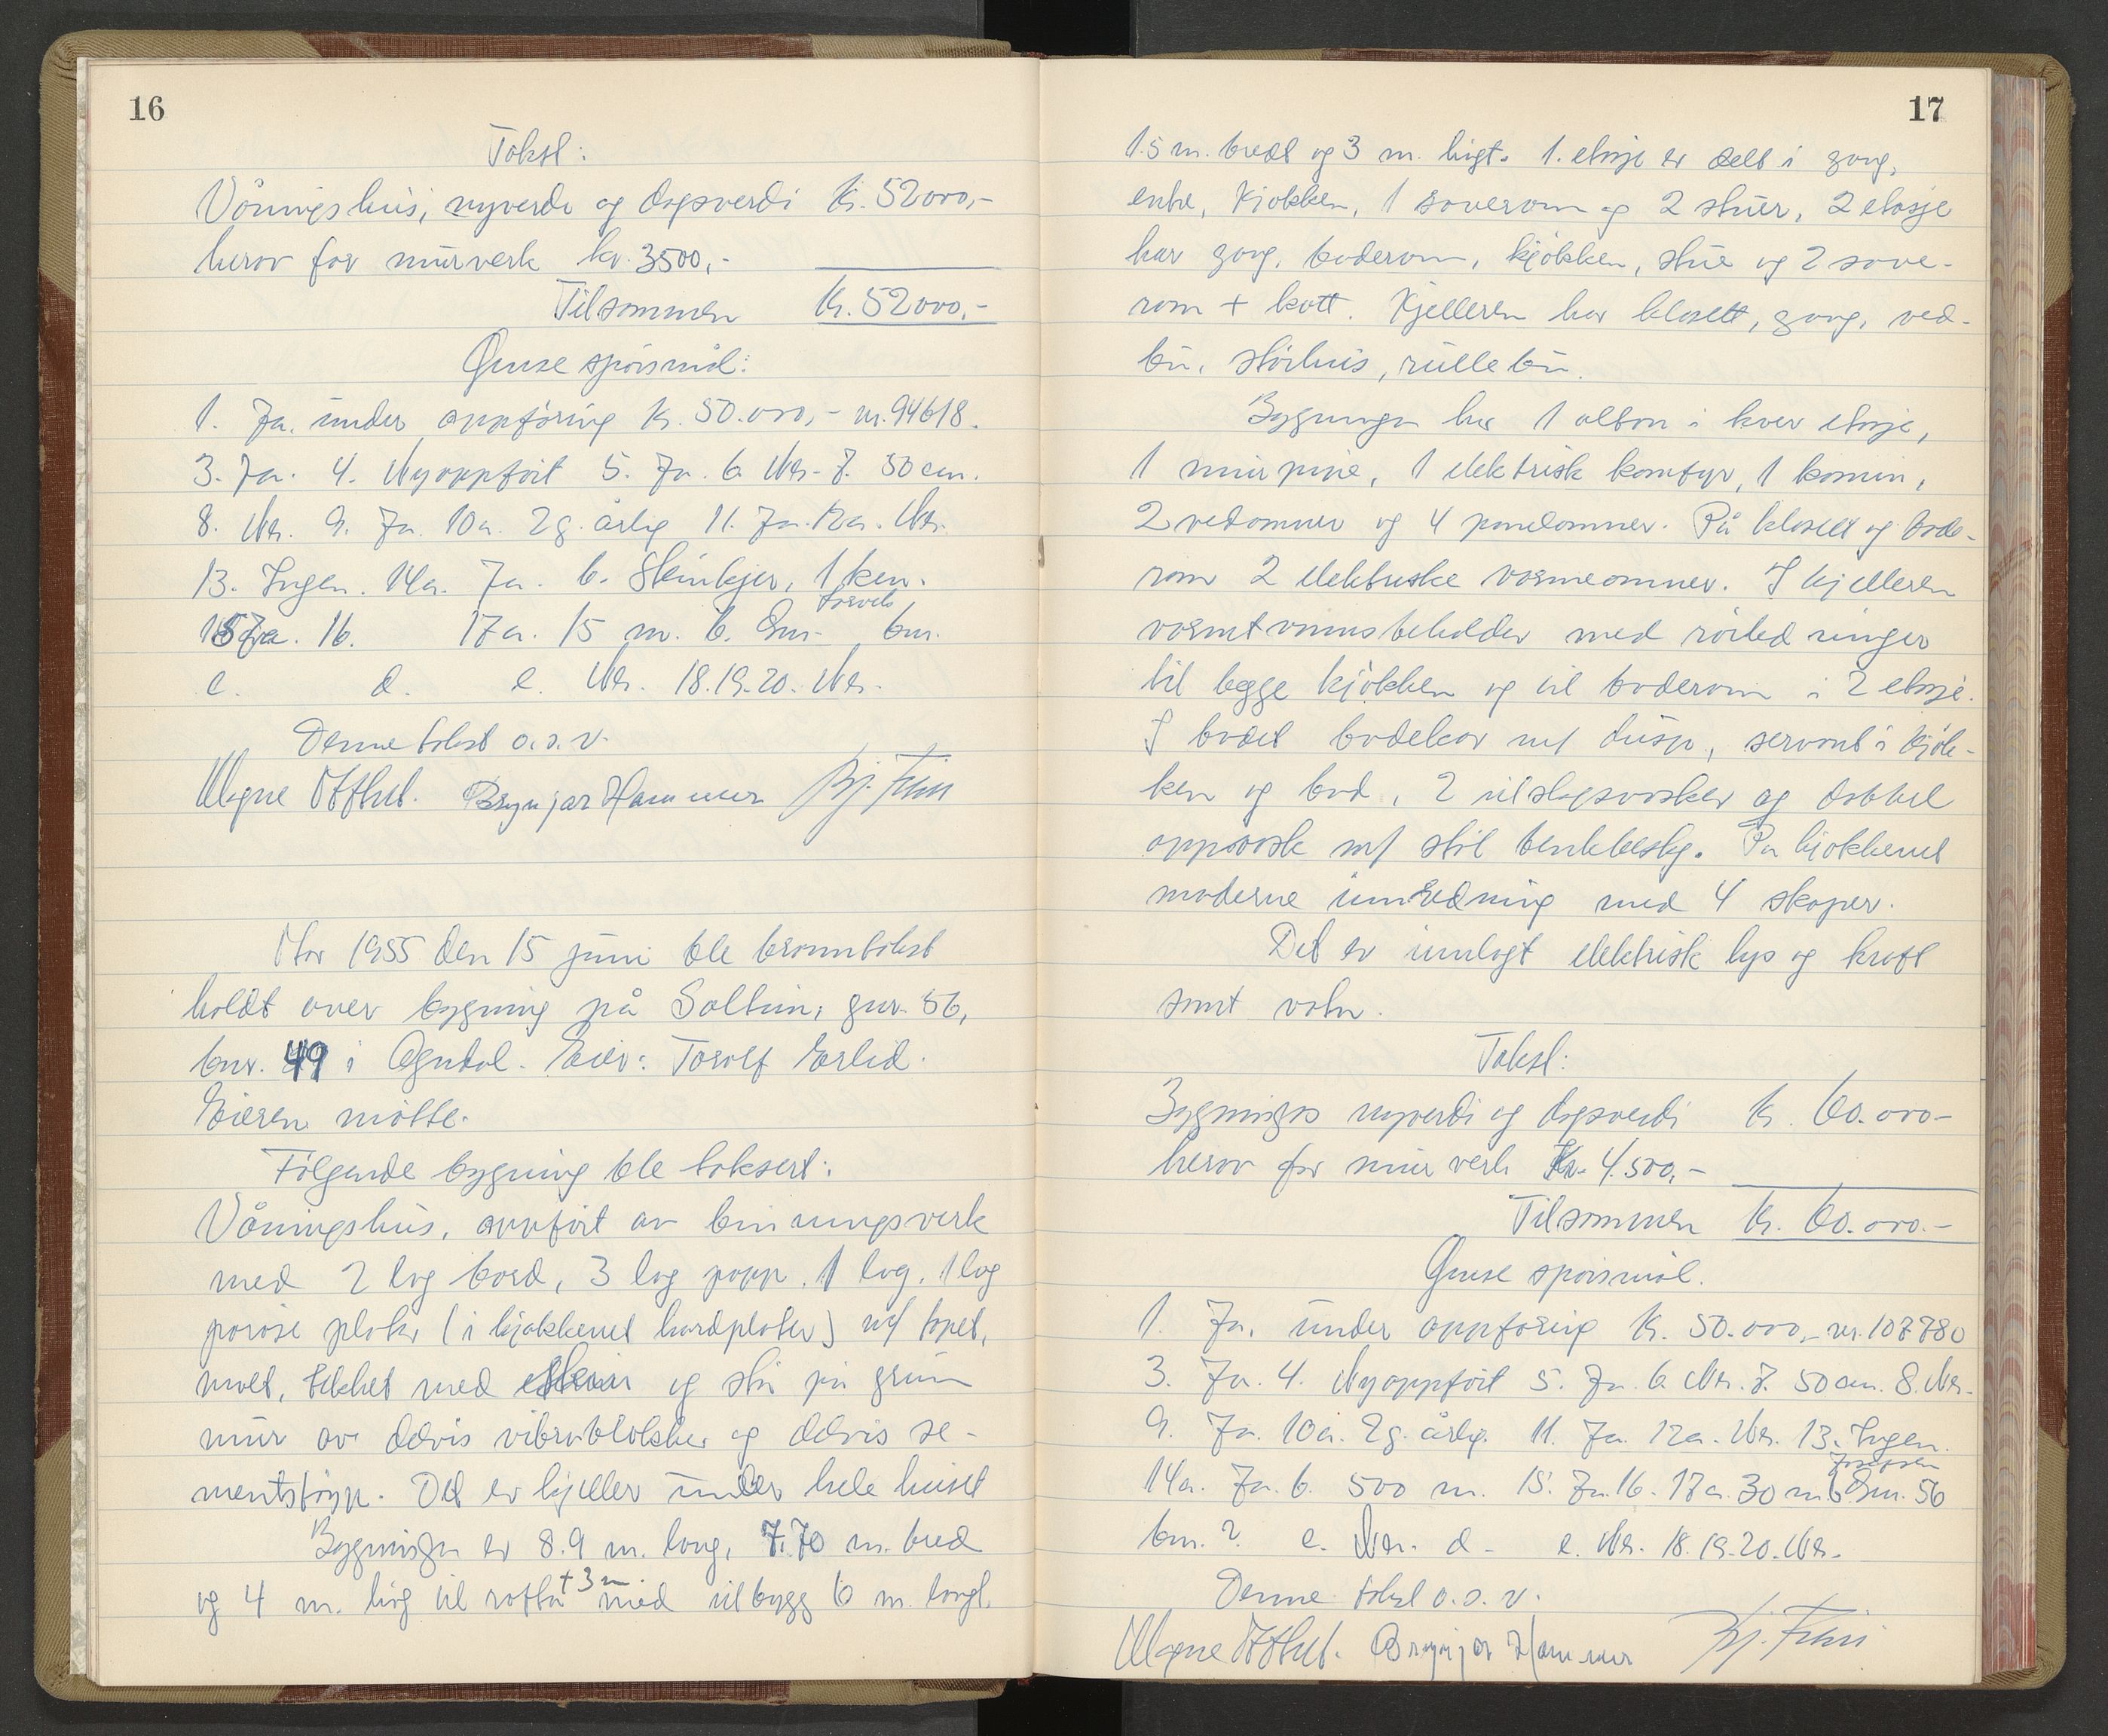 16
Takst:
Våningshus, nyverdi og dagsverdi kr. 52000,-
herav for murverk kr. 3500,-
Tilsammen kr. 52000,-
Øvrige spørsmål:
1. Ja. under oppføring kr. 50.000,- nr. 94618.
3. Ja. 4. Nyoppført 5. Ja. 6. Nei. 7. 50 cm.
8. Nei. 9. Ja. 10a. 2 g. årlig 11. Ja. 12a. Nei.
13. Ingen. 14a. Ja. b. Steinkjer, 1 km.
15 Ja. 16. 17a. 15 m. b. Gnr. bnr.
c. d. e. Nei. 18.19.20. Nei.
Denne takst o.s.v.
Magne Østhus. Brynjar Hammer Bj. Five
År 1955 den 15 juni ble branntakst
holdt over bygning på Solbu, gnr. 56,
bnr. 49 i Ogndal. Eier: Torolf
Eieren møtte.
Følgende bygning ble taksert:
Våningshus, oppført av bindingsverk
med 2 lag bord, 3 lag papp. 1 lag. 1 lag
porøse plater (i kjøkkenet hardplater) m/ tapet,
malt, tekket med og står på grunn
mur av delvis vibroblokker og delvis se-
mentstøpp. Det er kjeller under hele huset
Bygningen er 8.9 m. lang, 7.70 m. bred
og 4 m. høg til raftet +3 m med utbygg 6 m. langt.
17
1.5 m. bredt og 3 m. høgt. 1. etasje er delt i gang,
entre, kjøkken, 1 soverom og 2 stuer, 2 etasje
har gang, baderom, kjøkken, stue og 2 sove-
rom + kott. Kjelleren har klosett, gang, ved-
bu, rullebu.
Bygningen har 1 altan i hver etasje,
1 murpipe, 1 elektrisk komfyr, 1 kamin,
2 vedomner og 4 panelomner. På klosett og bade-
rom 2 elektriske varmeomner. I kjelleren
varmtvannsbeholder med rørledninger
til begge kjøkken og til baderom i 2 etasje.
I badet badekar m/ dusj, servant i kjøk-
ken og bad, 2 utslagsvasker og dobbel
oppvask m/ stål benkbeslag. På kjøkkenet
moderne innredning med 4 skaper.
Det er innlagt elektrisk lys og kraft
samt vatn.
Takst:
Bygnings nyverdi og dagsverdi kr. 60.000-
herav for murverk kr. 4.500,-
Tilsammen kr. 60.000.-
Øvrige spørsmål.
1. Ja, under oppføring kr. 50.000,- nr. 107780
3. Ja. 4. Nyoppført 5. Ja. 6. Nei. 7. 50 cm. 8. Nei.
9. Ja. 10a. 2 g. årlig. 11. Ja. 12a. Nei. 13. Ingen.
14a. Ja. b. 500 m. 15. Ja. 16. 17a. 30 m. b. Gnr. 56
bnr. ? c. Nei. d - e. Nei. 18.19.20. Nei.
Denne takst o.s.v.
Magne Østhus. Brynjar Hammer Bj. Five